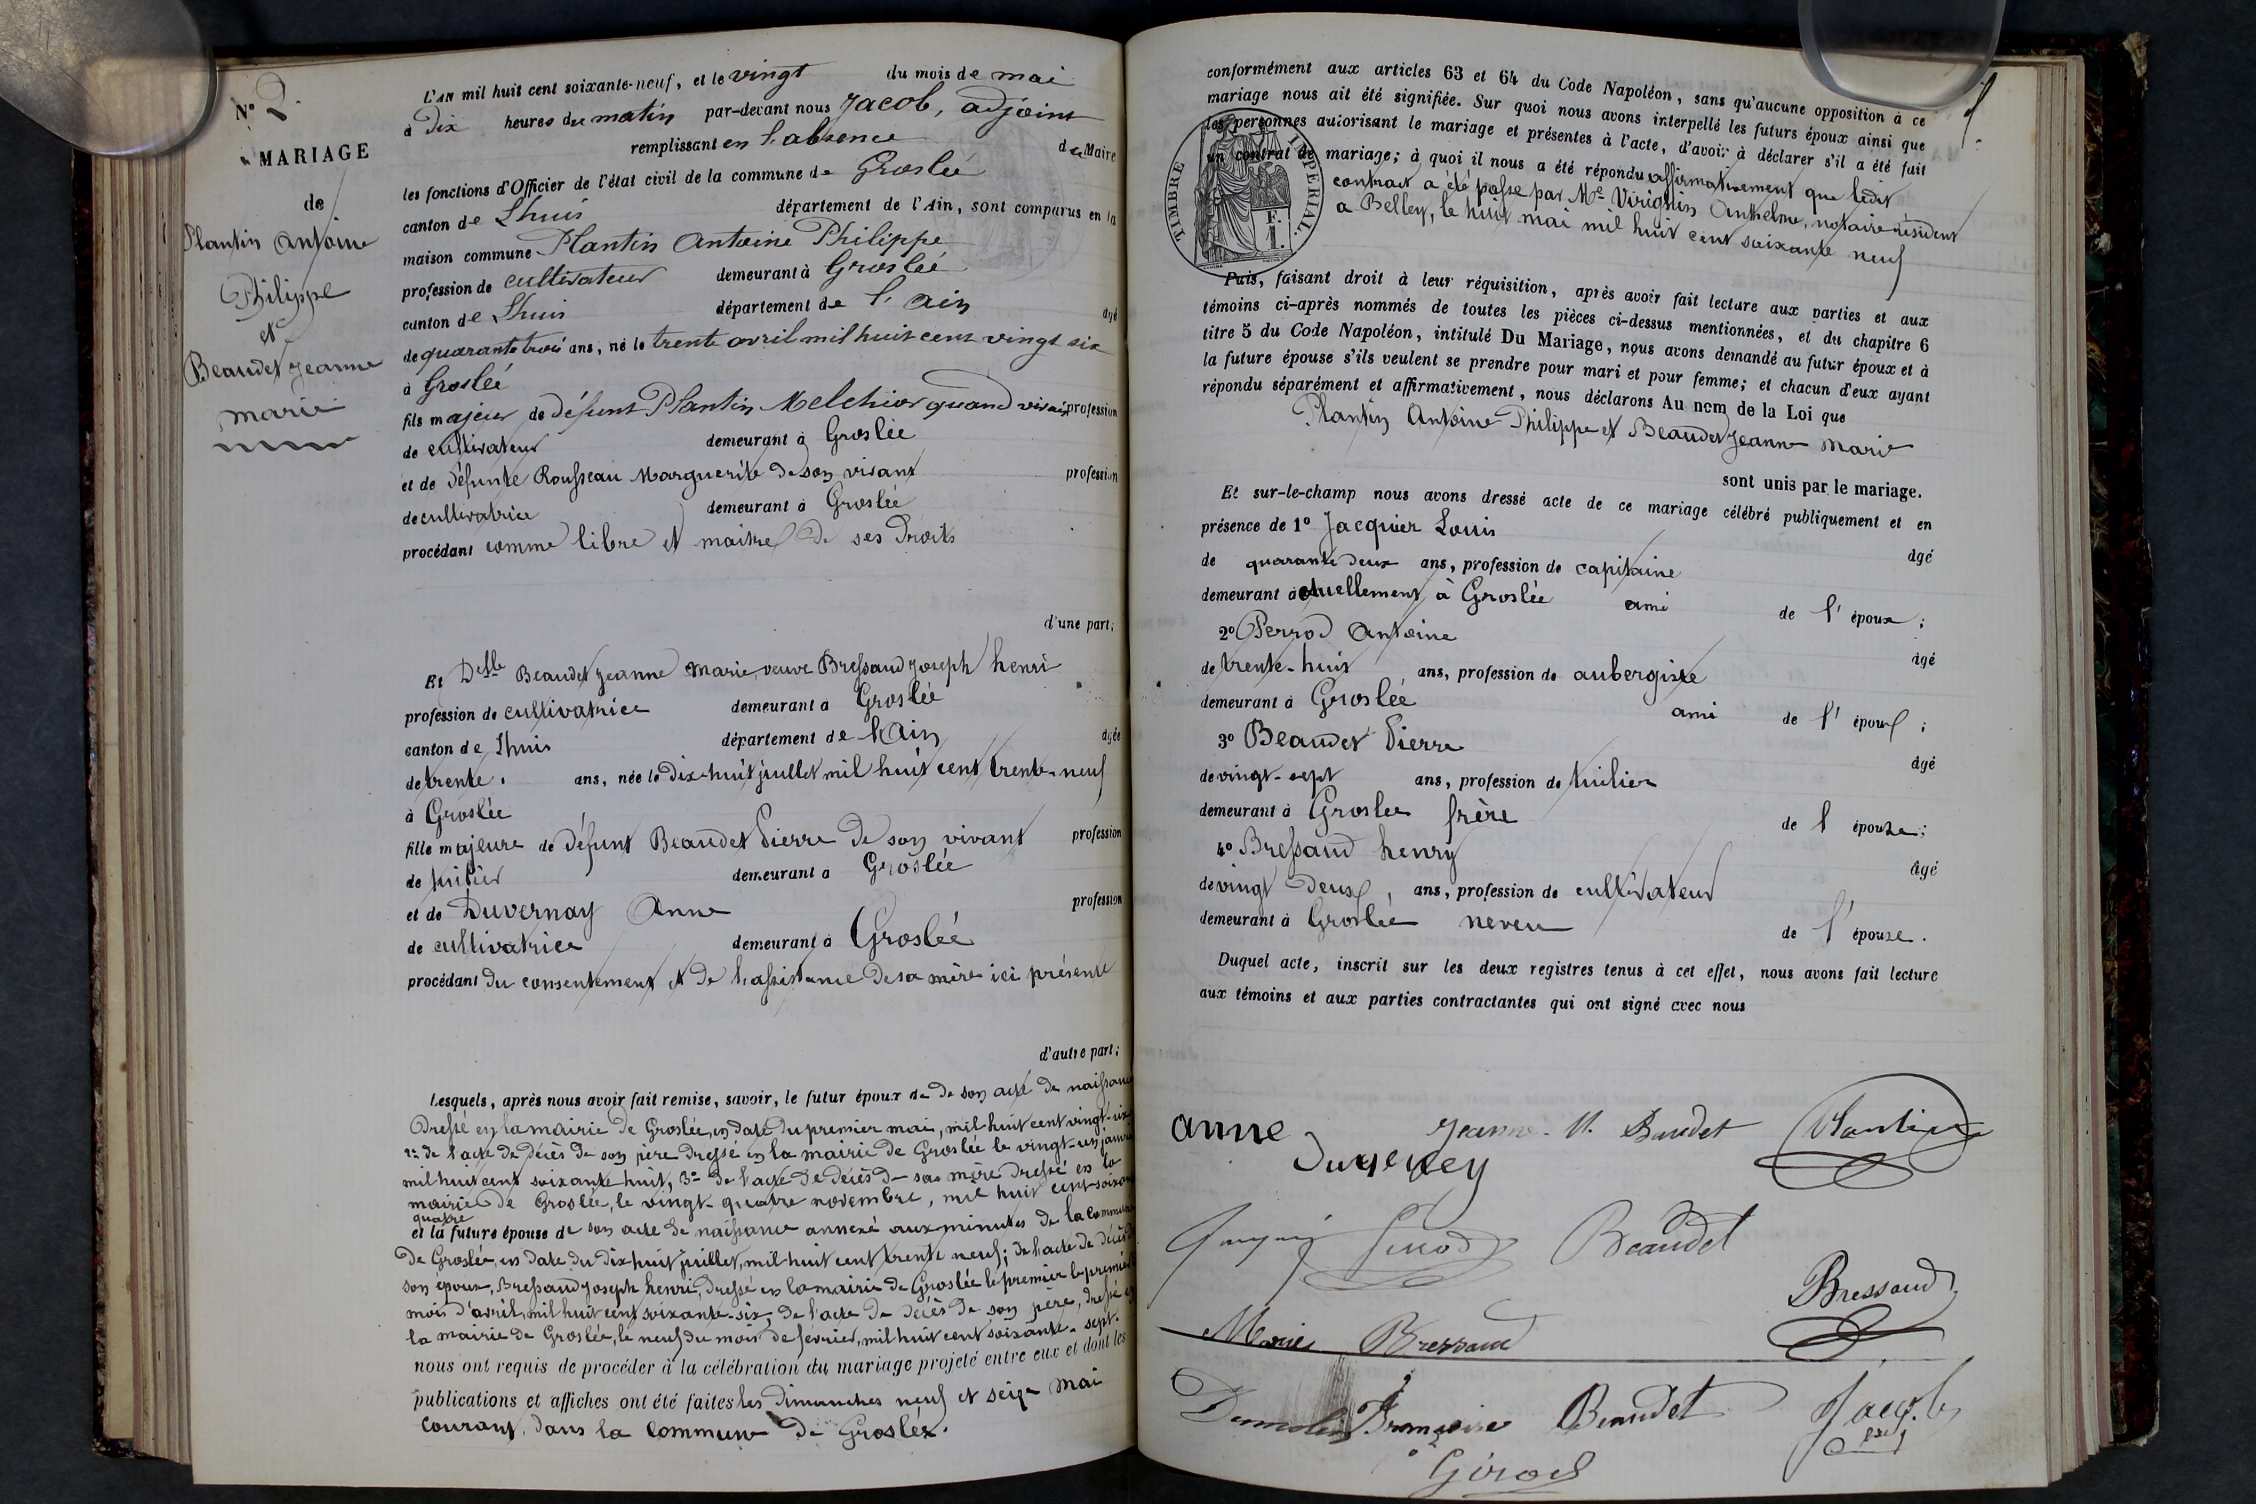 N° 2.
MARIAGE
de
Plantin Antoine
Philippe
et
Beaudet Jeanne
marie
L'AN mil huit cent soixante-neuf, et le vingt du mois de mai
à Dix heures du matin par-devant nous Jacob, adjoint
remplissant en l'absence du Maire
les fonctions d'Officier de l'état civil de la commune de Groslée
canton de Lhuis département de l'Ain, sont comparus en la
maison commune Plantin Antoine Philippe
profession de cultivateur demeurant à Groslée
canton de Lhuis département de l'ain âgé
de quarante trois ans, né le trente avril mil huit cent vingt six
à Groslée
fils majeur de défunt Plantin Melchior quand vivait profession
de cultivateur demeurant à Groslée
et de défunte Rousseau Marguerite de son vivant profession
de cultivatrice demeurant à Groslée
procédant comme libre et maitre de ses droits
d'une part;
Et Delle Beaudet Jeanne Marie, veuve Bressaud Joseph henri
profession de cultivatrice demeurant à Groslée
canton de Lhuis département de l'Ain âgée
de trente. ans, née le Dix-huit juillet mil huit cent trente-neuf
à Groslée
fille majeure de défunt Beaudet Pierre de son vivant profession
de tuilier demeurant à Groslée
et de Duvernay Anne profession
de cultivatrice demeurant à Groslée
procédant du consentement et de l'assistance de sa mère ici présente
d'autre part;
Lesquels, après nous avoir fait remise, savoir, le futur époux de de son acte de naissance
Dressé en la mairie de Groslée, en date du premier mai, mil huit cent vingt-six
2° de l'acte de décès de son père dressé en la mairie de Groslée le vingt-un janvier
mil huit cent soixante huit, 3° de l'acte de décès de sa mère dressé en la
mairie de Groslée, le vingt-quatre novembre, mil huit cent soixante
quatre
et la future épouse de son acte de naissance annexé aux minutes de la commune
de Groslée, en date du dix huit juillet, mil huit cent trente neuf; de l'acte de décès de
son époux, Bressaud Joseph henri, dressé en la mairie de Groslée le premier le premier
mois d'avril, mil huit cent soixante-six, de l'acte de décès de son père, dressé en
la mairie de Groslée, le neuf du mois de février, mil huit cent soixante-sept.
nous ont requis de procéder à la célébration du mariage projeté entre eux et dont les
publications et affiches ont été faites les Dimanches neuf et seize mai
courant, dans la commune de Groslée.
conformément aux articles 63 et 64 du Code Napoléon, sans qu'aucune opposition à ce
mariage nous ait été signifiée. Sur quoi nous avons interpellé les futurs époux ainsi que
les personnes autorisant le mariage et présentes à l'acte, d'avoir à déclarer s'il a été fait
un contrat de mariage; à quoi il nous a été répondu affirmativement que ledit
contrat a été passé par Me Virignin Anthelme, notaire résident
a Belley, le huit mai mil huit cent soixante neuf
TIMBRE IMPERIAL.
1 F.
Puis, faisant droit à leur réquisition, après avoir fait lecture aux parties et aux
témoins ci-après nommés de toutes les pièces ci-dessus mentionnées, et du chapitre 6
titre 5 du Code Napoléon, intitulé Du Mariage, nous avons demandé au futur époux et à
la future épouse s'ils veulent se prendre pour mari et pour femme; et chacun d'eux ayant
répondu séparément et affirmativement, nous déclarons Au nom de la Loi que
Plantin Antoine Philippe et Beaudet Jeanne Marie
sont unis par le mariage.
Et sur-le-champ nous avons dressé acte de ce mariage célébré publiquement et en
présence de 1° Jacquier Louis âgé
de quarante deux ans, profession de capitaine
demeurant actuellement à Groslée ami de l'époux;
2° Perrod Antoine âgé
de trente-huit ans, profession de aubergiste
demeurant à Groslée ami de l'époux;
3° Beaudet Pierre âgé
de vingt-sept ans, profession de tuilier
demeurant à Groslee frère de l épouse;
4° Bressaud henry âgé
de vingt deux, ans, profession de cultivateur
demeurant à Groslée neveu de l'épouse.
Duquel acte, inscrit sur les deux registres tenus à cet effet, nous avons fait lecture
aux témoins et aux parties contractantes qui ont signé avec nous
anne Jeanne. M. Baudet Plantin
Perrod Beaudet
Bressaud
Marie Bressaud
Françoise Beaudet Jacob
Girod